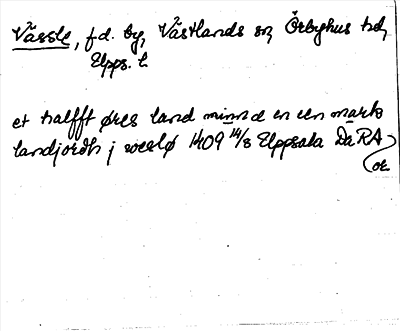 Vässle, f.d. by, Västlands sn, Örbyhus hd,
Upps. l.
et halfft øres land minnd en en mark
landjordh j weslø 1409 14/8 Uppsala Da RA
or.